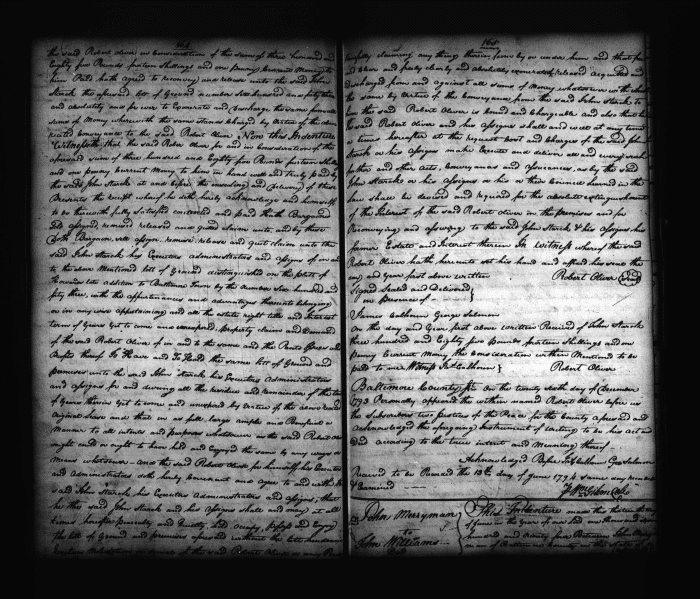 164
the said Robert Oliver in Consideration of the sum of three hundred and
Eighty five Pounds fourteen Shillings and one penny current Money to
him Paid hath agreed to reconvey and release unto the said John
Starck the aforesaid lott of Ground number six hundred and fifty three
and absolutely and for ever to Exonerate and Discharge the same from all
sums of Money wherewith the same Stands Charged by Virtue of the above
recited Conveyance to the said Robert Oliver. Now this Indenture
Witnesseth that the said Robert Oliver for and in Consideration of the
aforesaid sum of three hundred and Eighty five Pounds fourteen Shillings
and one penny current Money to him in hand well and truly paid by
the said John Starck at and before the ensealing and Delivery of these
Presents the receipt whereof he doth hereby acknowledge and himself
to be therewith fully satisfied contented and paid Hath Bargained
sold assigned, remised released and quit claim unto, and by these
Doth Bargain, sell assign, remise release and quit claim unto the
said John Starck his Executors administrators and assigns of in and
to the above Mentioned lott of Ground distinguished on the plat of
Howards late addition to Baltimore Town by the number six hundred and
fifty three, with the appurtenances and advantages thereunto belonging
or in any wise appertaining and all the estate right title and Interest
term of Years Yet to come and unexpired, property claim and Demand
of the said Robert Oliver of in and to the same and the Rents Issues and
Profits thereof To Have and To Hold the same lott of Ground and
premises unto the said John Starck his Executors Administrators
and assigns for and during all the residue and remainder of the term
of Years therein Yet to come and unexpired by Virtue of the above
Original lease and that in as full, large ample and Beneficial a
Manner to all intents and purposes whatsoever as the said Robert Oliver
might could or ought to have held and Enjoyed the same by any ways or
Means whatsoever and the said Robert Oliver for himself his Executors
and administrators doth hereby Covenant and agree to and with the
said John Starck his Executors administrators and assigns, that
he the said John Starck and his assigns shall and may at all
times hereafter peaceably and Quietly hold occupy, possess and Enjoy
the lott of Ground and premises aforesaid without the lett hindrance
165
lawfully claiming any thing therein from by or under him and that free
and clear and freely clearly and absolutely exonerated, released acquitted and
discharged from and against all sums of Money whatsoever with which
the same by Virtue of the Conveyance from the said John Starck to
him the said Robert Oliver is bound and chargeable and also that he
the said Robert Oliver and his assigns shall and will at any time
or times hereafter at the request cost and Charges of the said John
Starck or his assigns make Execute and deliver all and every such
further and other acts, Conveyances and assurances, as by the said
John Starck or his assigns or his or their Council learned in the
law shall be devised and required for the absolute extinguishment
of the Interest of the said Robert Oliver in the premises and for
Reconveying and assuring to the said John Starck & his assigns his
former Estate and Interest therein In Witness whereof the said
Robert Oliver hath hereunto set his hand and affixed his seal the
day and year first above written Robert Oliver Seal
Signed Sealed and Delivered
in Presence of
James Calhoun George Salmon
On the day and Year first above written Received of John Starck
three hundred and Eighty five pounds fourteen Shillings and one
penny Current Money the Consideration within Mentioned to be
paid to me Witness Jas Calhoun Robert Oliver
Baltimore County ss On the twenty sixth day of December
1793 Personally appeared the within named Robert Oliver before us
the Subscribers two Justices of the Peace for the County aforesaid and
Acknowledged the foregoing Instrument of writing to be his act and
Deed according to the true intent and Meaning thereof
Acknowledged Before Jas Calhoun Geo Salmon
Received to be Record the 13th day of June 1794 same day recorded
& Examined
John Merryman
to
John Williams
This Indenture made this thirteenth day
of June in the year of our Lord one thousand seven
hundred and ninety four Between John Merryman